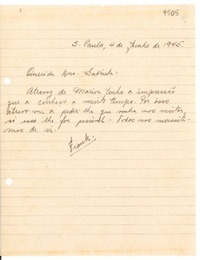 S. Paulo, 4 de Junho de 1945.
Querida Dna. Gabriela:
Atravez de Marion tenho a impressão
que a conheço a muito tempo. Por isso
atrevo-me a pedir-lhe que venha nos visitar,
si isso lhe for possivel. Todos nos necessita-
mos de si.
Frank.